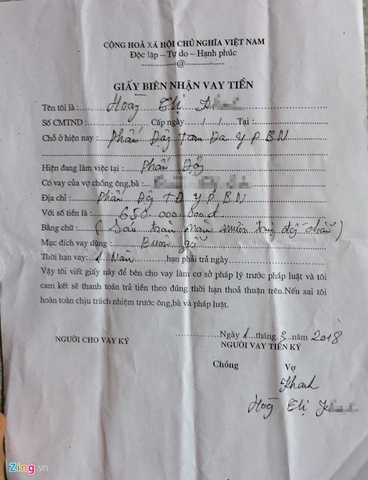 CỘNG HOÀ XÃ HỘI CHỦ NGHĨA VIỆT NAM
Độc lập – Tự do – Hạnh phúc
------------@------------
GIẤY BIÊN NHẬN VAY TIỀN
Tên tôi là : Hoàng Thị
Số CMTND : Cấp ngày / / Tại :
Chỗ ở hiện nay : Phấn Động Tam Đa Y P. B N
Hiện đang làm việc tại : Phấn Động
Có vay của vợ chồng ông,bà :
Địa chỉ : Phấn Động TĐ Y P. B N
Với số tiền là : 650.000.000đ
Bằng chữ : ( Sáu trăm năm mươi triệu đồng chẵn )
Mục đích vay dùng : Buôn gỗ
Thời hạn vay: 1 Năm hạn phải trả ngày
Vậy tôi viết giấy này để bên cho vay làm cơ sở pháp lý trước pháp luật và tôi
cam kết sẽ thanh toán trả tiền theo đúng thời hạn thoả thuận trên.Nếu sai tôi
hoàn toàn chịu trách nhiệm trước ông,bà và pháp luật.
Ngày 1 ..tháng. 3 .năm 2018
NGƯỜI CHO VAY KÝ NGƯỜI VAY TIỀN KÝ
Chồng Vợ
Khanh
Hoàng Thị
Zing.vn